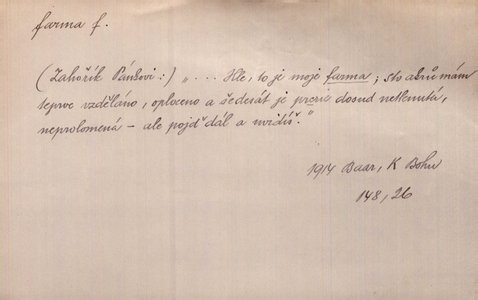 farma f.
(Zahořík Pánkovi:) „ . . . Hle, to je moje farma; sto akrů mám
teprve vzděláno, oploceno a šedesát je prerie dosud netknutá,
neprolomená – ale pojď dál a uvidíš."
1914 Baar, K Bohu
148, 26